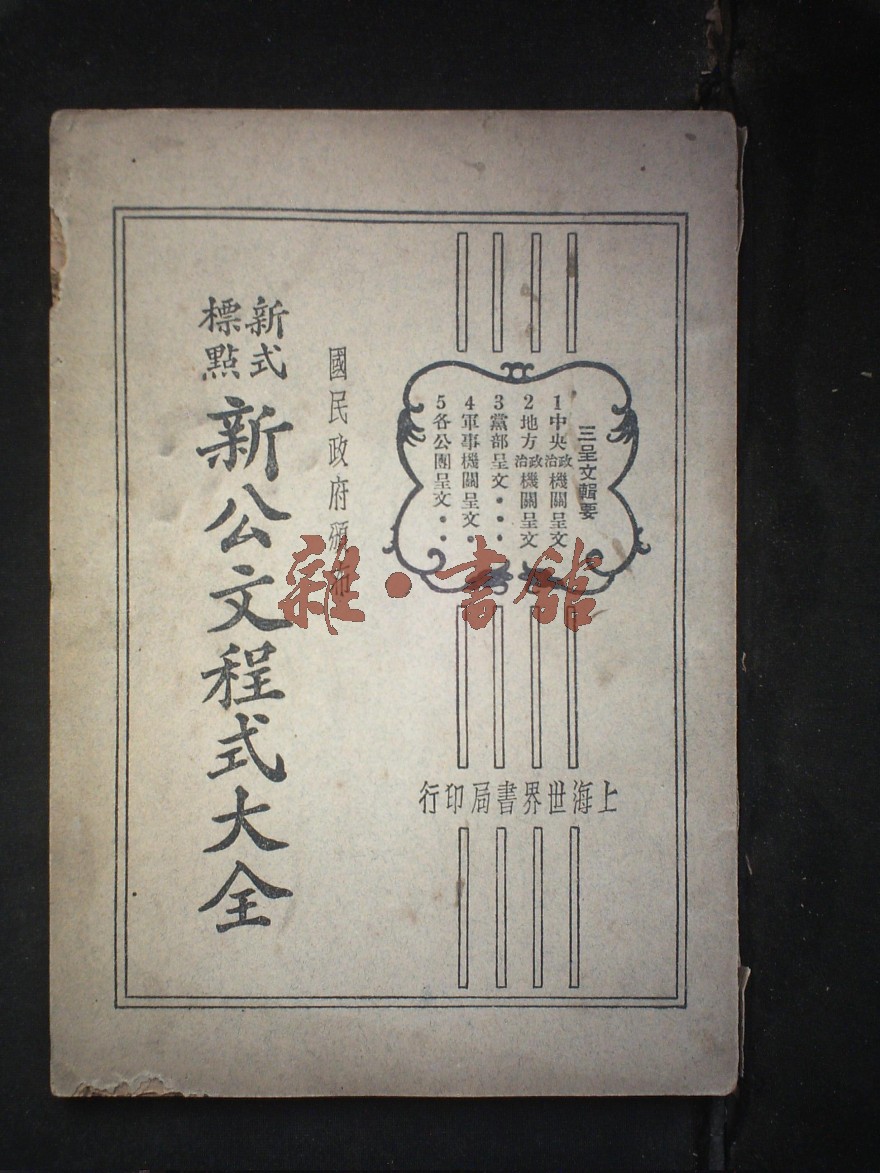 三呈文輯要
1中央政治機關呈文
2地方政治機關呈文
3黨部呈文・・・
4軍事機關呈文・
5各公團呈文・・
上海世界書局印行
國民政府頒布
新式標點
新公文程式大全
雜・書館